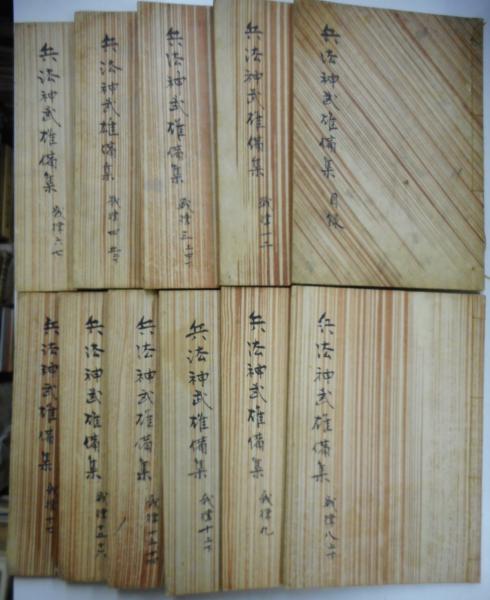 兵法神武雄備集 目録
兵法神武雄備集 戦律一二
兵法神武雄備集 戦律三上中下
兵法神武雄備集 戦律四五
兵法神武雄備集 戦律六七
兵法神武雄備集 戦律八上下
兵法神武雄備集 戦律九
兵法神武雄備集 戦律十上下
兵法神武雄備集 戦律
兵法神武雄備集 戦律十五十六
兵法神武雄備集 戦律十七